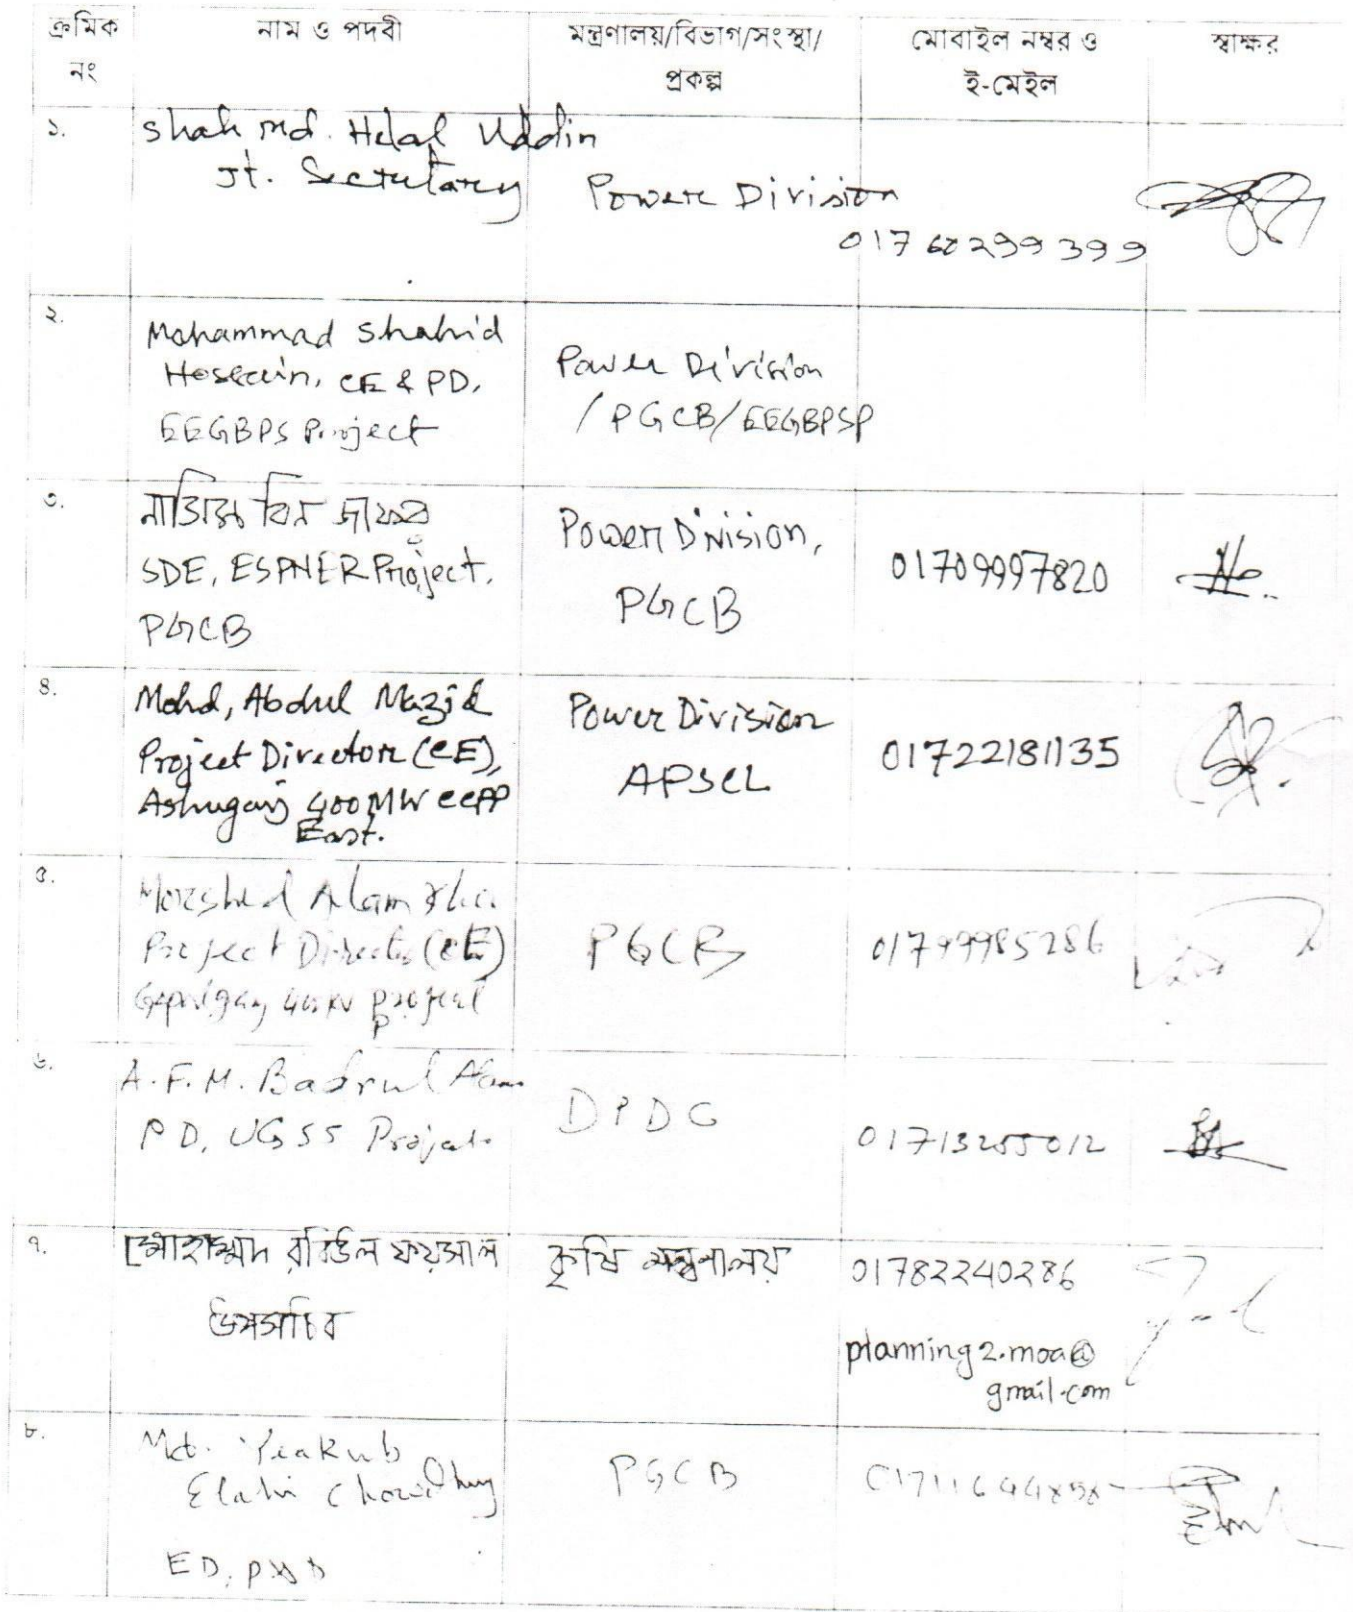 ক্রমিক নং	নাম ও পদবী	মন্ত্রণালয়/বিভাগ/সংস্থা/প্রকল্প	মোবাইল নম্বর ও ই-মেইল	স্বাক্ষর
১.
Shah Md. Helal Uddin
Jt. Secretary
Power Division
২.
Mohammad Shahid
Hossain, CE & PD,
EEGBPS Project
Power Division
/PGCB/EEGBPSP
৩.
বিন জাফর
SDE, ESPNER Project,
PGCB
Power Division,
PGCB
01709997820
৪.
Mohd, Abdul Mazid
Project Director (CE),
Ashuganj 400MW CCPP
East.
Power Division
APSCL
01722181135
৫.
Morshed Alam
Project Director (CE)
Project
PGCB
৬.
A.F.M. Badrul Alam
PD, UGSS Project
DPDC
01713255012
৭.
মোহাম্মদ রবিউল ফয়সাল
উপসচিব
কৃষি মন্ত্রণালয়
01782240286
planning2.moa@
gmail.com
৮.
Md. Yeakub
Elahi Chowdhury
ED,
PGCB